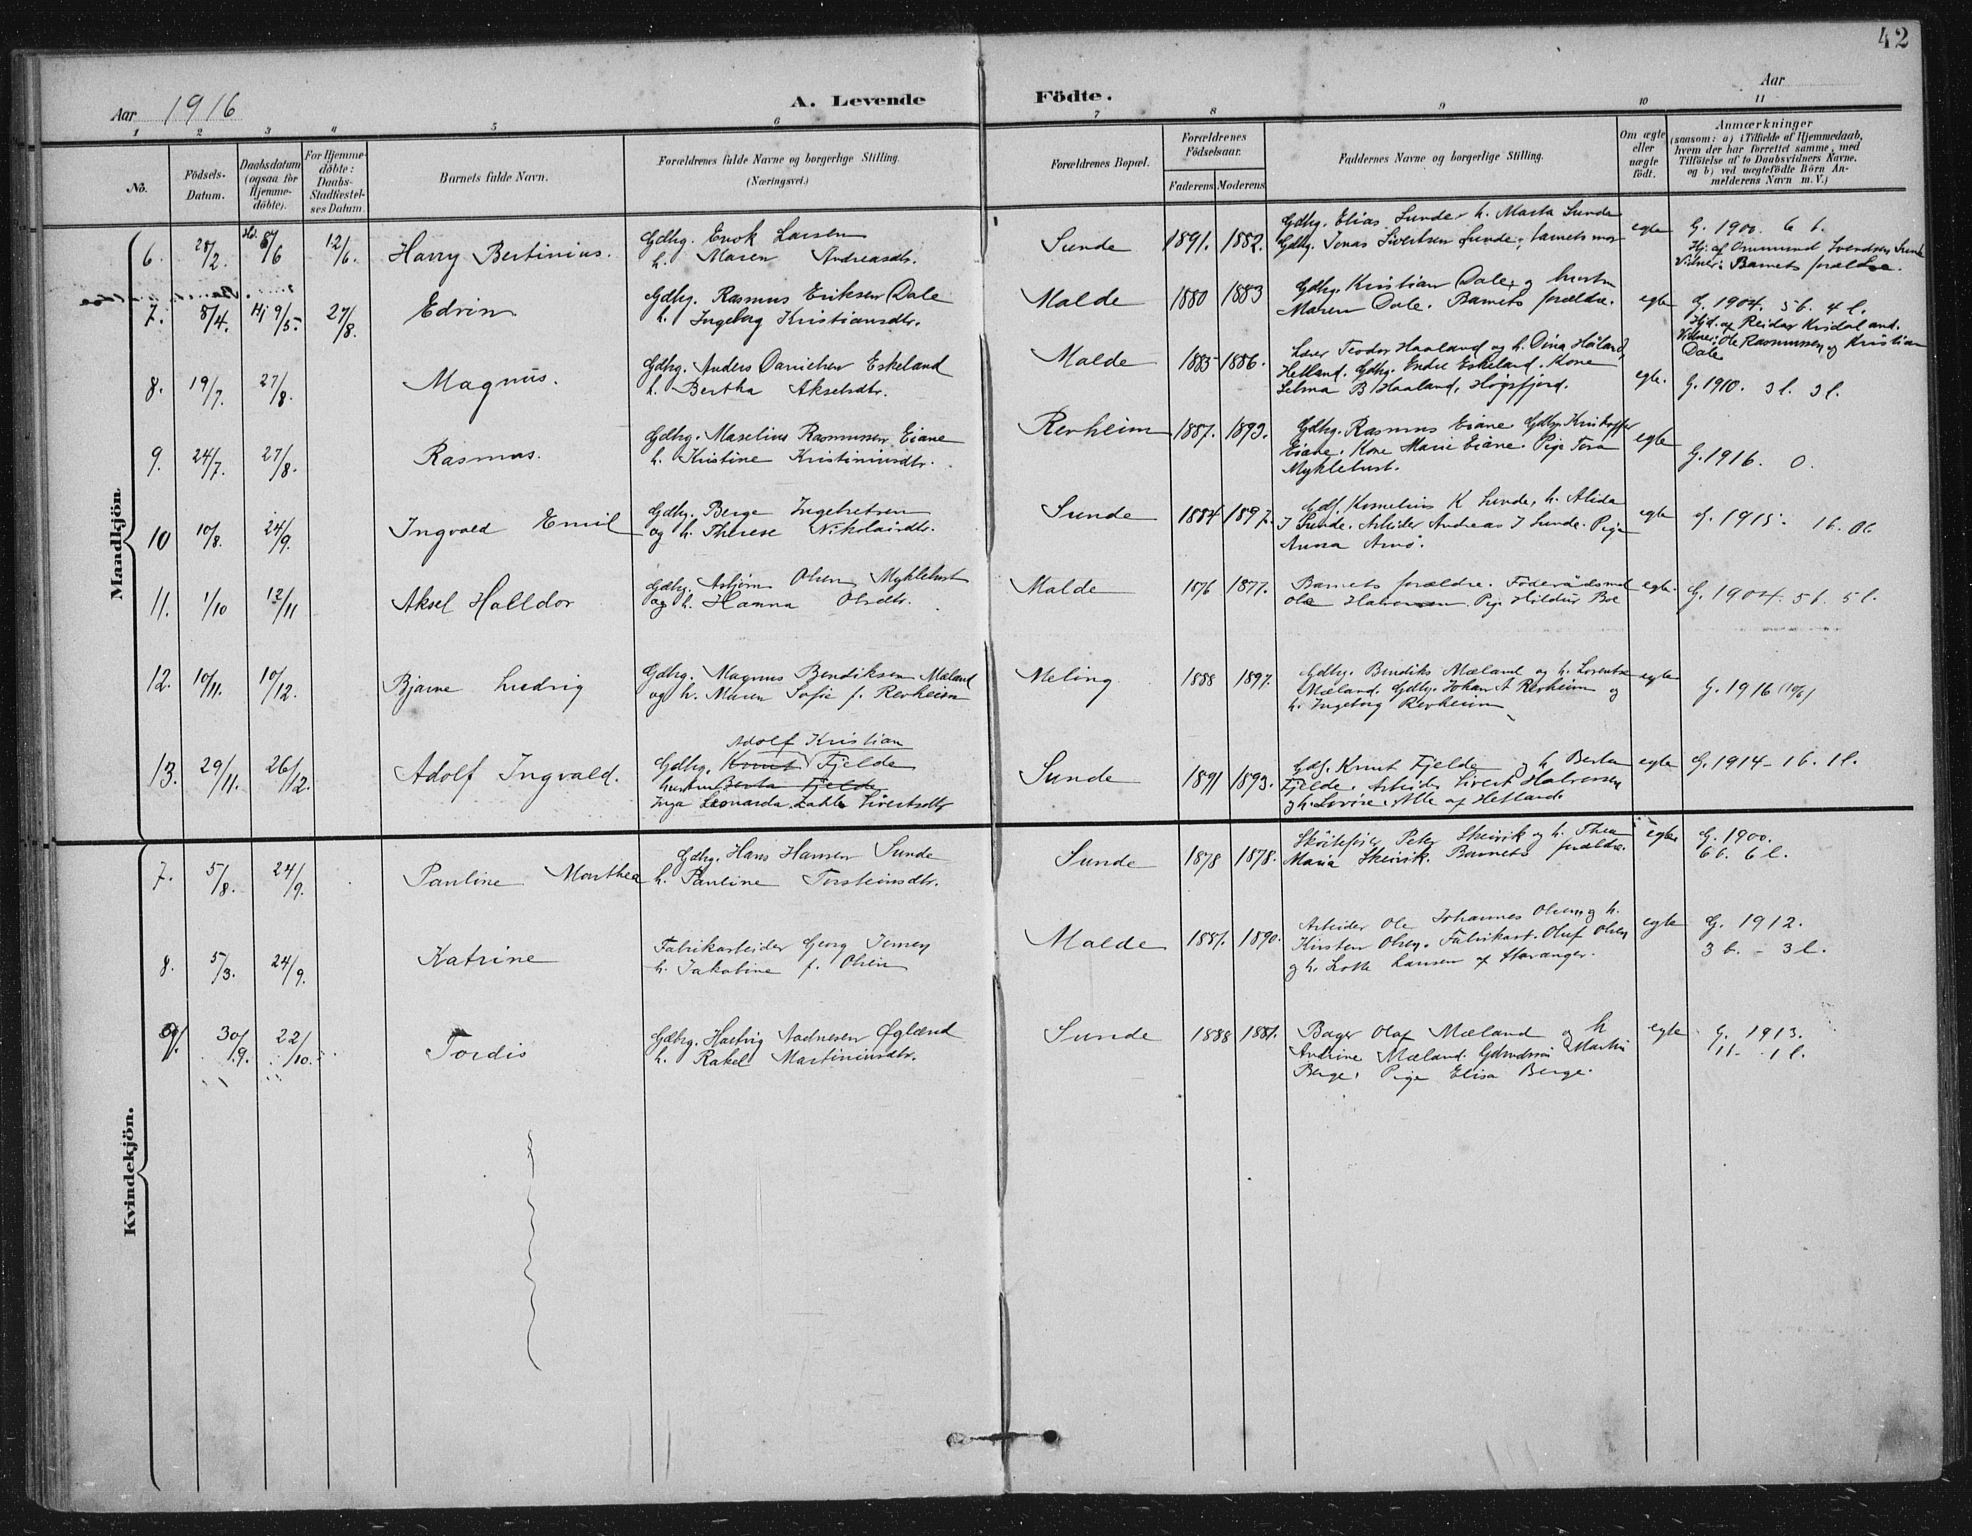 42
Aar 1916
A. Levende Födte.
Aar
1 2 3 4 5 6 7 8 9 10 11
No.
Födsels-Datum.
Daabsdatum (ogsaa for Hjemme-döbte).
For Hjemme-döbte: Daabs-Stadfæstel-ses Datum.
Barnets fulde Navn.
Forældrenes fulde Navne og borgerlige Stilling.
(Næringsvei.)
Forældrenes Bopæl.
Forældrenes Födselsaar.
Faderens Moderens
Faddernes Navne og borgerlige Stilling.
Om ægte eller uægte födt.
Anmærkninger
(saasom: a) i Tilfælde af Hjemmedaab,
hvem der har forrettet samme, med
Tilföielse af to Daabsvidners Navne.
og b) ved uægtefödte Börn An-
melderens Navn m. V.)
Mandkjön.
6. 28/2. Hd. 8/6 12/6. Harry Bertinius.
Gdbg. Enok Larsen
h. Maren Andreasdtr.
Sunde 1891. 1882.
Gdbg. Elias Sunde. h. Marta Sunde
Gdbg. Jonas Sivertsen Sunde, barnets mor
egte
G. 1900. 6 b.
Hj. af Ommund Svendsen Sunde
Vidner: Barnets forældre.
7. 8/4. Hj 9/5. 27/8. Edvin
Gdbg. Rasmus Eriksen Dale
h. Ingeborg Kristiansdtr.
Malde 1880 1883
Gdbg. Kristian Dale og hustru
Maren Dale. Barnets forældre.
egte
G. 1904. 5 b. 4 l.
Hjd. af Reidar Kvidaland.
Vidner: Ole Rasmussen og Kristian
Dale
8. 19/7. 27/8. Magnus.
Gdbg. Anders Danielsen Eskeland
h. Bertha Akselsdtr.
Malde 1885 1886.
Lærer Teodor Haaland og h. Dina Haaland,
Hetland. Gdbg. Endre Eskeland. Kone
Selma B Haaland, Högsfjord.
egte.
G. 1910. 3 l. 3 l.
9. 24/7. 27/8. Rasmus.
Gdbg. Maselius Rasmussen Eiane
h. Kristine Kristiniusdtr.
Revheim 1887. 1893.
Gdbg. Rasmus Eiane Gdbg. Kristoffer
Eiane. Kone Marie Eiane. Pige Tora
Myklebust.
egte
G. 1916. 0.
10 10/8. 24/9. Ingvald Emil
Gdbg. Berge Ingebretsen
og h. Therese Nikolaisdtr.
Sunde 1884 1897.
Gdf. Kornelius K Sunde, h. Alida
J Sunde. Arbeider Andreas J Sunde. Pige
Anna Arnö.
egte
G. 1915. 1 b. 0 l.
11. 1/10 12/11 Aksel Halldor
Gdbg. Asbjörn Olsen Myklebust
og h. Hanna Olsdtr.
Malde 1876 1877.
Barnets forældre. Föderådsmd
Ole Halvorsen. Pige Hildur Boe
egte.
G. 1904. 5 b. 5 l.
12. 10/11. 10/12. Bjarne Ludvig
Gdbg. Magnus Bendiksen Mæland
og h. Maren Sofie f. Revheim
Meling 1888 1897.
Gdbg. Bendiks Mæland og h. Lorentse
Mæland. Gdbg. Johan A Revheim og
h. Ingeborg Revheim
egte
G. 1916 (10/6)
13. 29/11. 26/12. Adolf Ingvald.
Adolf Kristian
Gdbg. Knut Fjelde
hustru Berta Fjelde
Inga Leonarda Ladle Sivertsdtr
Sunde 1891 1893.
Gdf. Knut Fjelde og h. Berta
Fjelde. Arbeider Sivert Halvorsen
og h. Lovise. Alle af Hetland.
egte
G. 1914 - 1 b. 1 l.
Kvindekjön.
7. 5/8. 24/9. Pauline Marthea
Gdbg. Hans Hansen Sunde
h. Pauline Torsteinsdtr.
Sunde 1878 1878.
Sköitefører Peter Skeivik og h. Thea
Maria Skeivik. Barnets forældre.
egte
G. 1900.
6 b. 6 l.
8. 5/3. 24/9. Katrine
Fabrikarbeider Georg Jensen
h. Jakobine f. Olsen
Malde 1887. 1890.
Arbeider Ole Johannes Olsen og h.
Kirsten Olsen. Fabrikarb. Oluf Olsen
og h. Lotte Hansen af Stavanger.
egte
G. 1912.
3 b. - 3 l.
9. 30/9. 22/10. Tordis
Gdbg. Hartvig Aadnesen Øglænd
h. Rakel Martiniusdtr.
Sunde 1888 1887.
Bager Olaf Mæland og h
Andrine Mæland. Gdmdssön Martin
Berge. Pige Elisa Berge.
egte
G. 1913.
1 l.